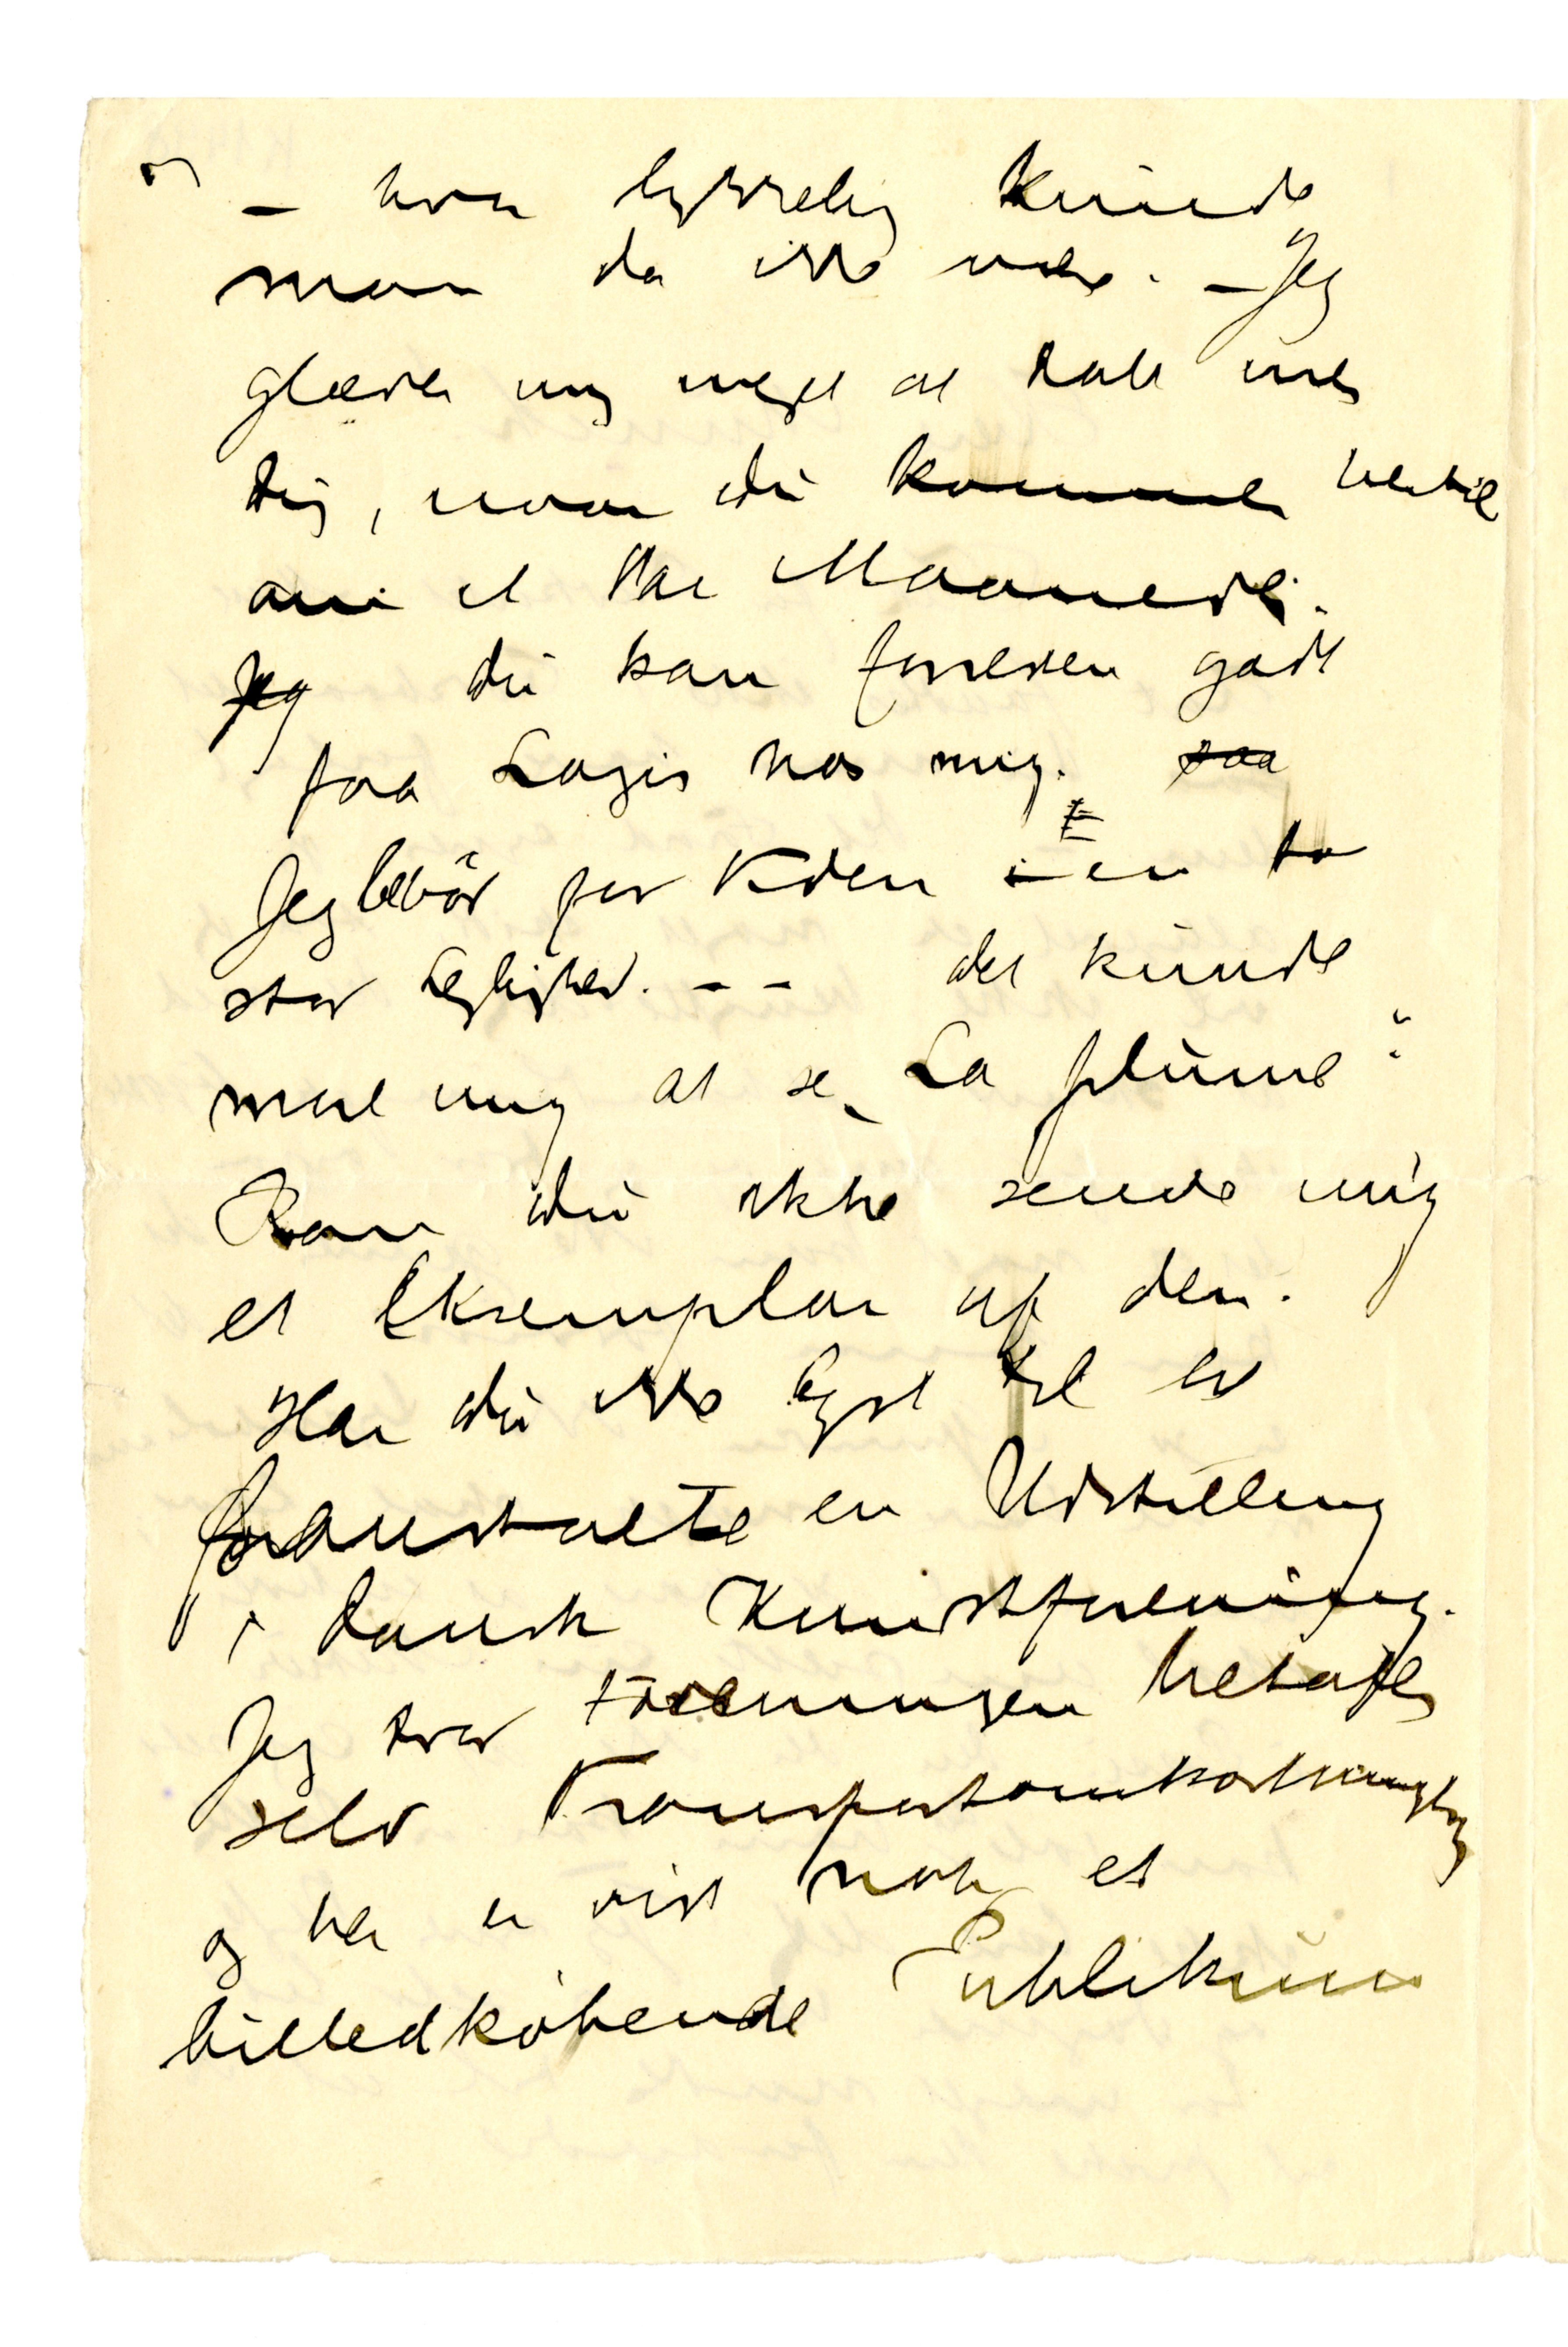 – hvor lykkelig kunde
man da ikke være. – Jeg
glæder mig meget at tale med
dig, naar du kommer hertil
om et Par Maaneder.
Jeg du kan foresten godt
faa Logis hos mig. saa
Jeg bebor for Tiden en
stor Leglighed. – – det kunde
more mig at se „La plume“
Kan du ikke sende mig
et Eksemplar af den.
Har du ikke Lyst til at
foranstalte en Udstilling
i dansk Kunstforening.
Jeg tror Foreningen betaler
selv Transportomkostningerne
og her er vist nok et
billedkøbende Publikum